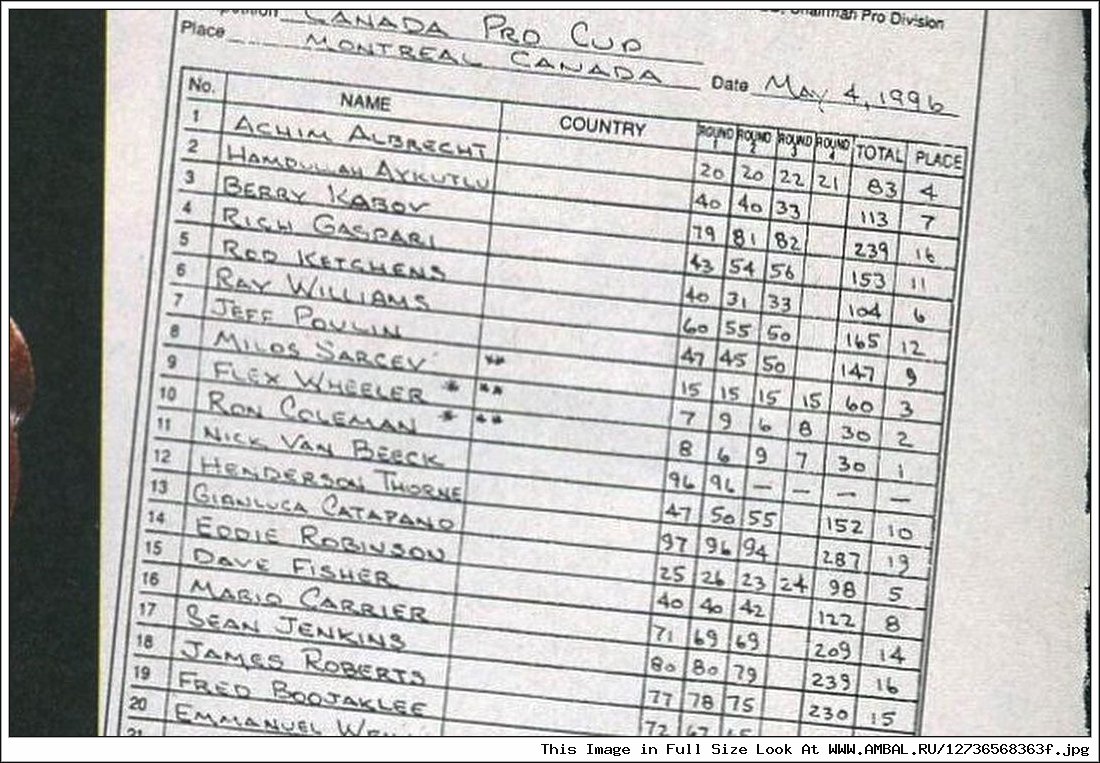 Chairman Pro Division
CANADA PRO CUP
Place MONTREAL CANADA Date MAY 4, 1996
No. NAME COUNTRY ROUND 1 ROUND 2 ROUND 3 ROUND 4 TOTAL PLACE
1 ACHIM ALBRECHT 20 20 22 21 83 4
2 HAMDULLAH AYKUTLU 40 40 33 113 7
3 BERRY KABOV 79 81 82 239 16
4 RICH GASPARI 43 54 56 153 11
5 ROD KETCHENS 40 31 33 104 6
6 RAY WILLIAMS 60 55 50 165 12
7 JEFF POULIN 47 45 50 147 9
8 MILOS SARCEV ** 15 15 15 15 60 3
9 FLEX WHEELER * ** 7 9 6 8 30 2
10 RON COLEMAN * ** 8 6 9 7 30 1
11 NICK VAN BEECK 96 96 — — — —
12 HENDERSON THORNE 47 50 55 152 10
13 GIANLUCA CATAPANO 97 96 94 287 19
14 EDDIE ROBINSON 25 26 23 24 98 5
15 DAVE FISHER 40 40 42 122 8
16 MARIO CARRIER 71 69 69 209 14
17 SEAN JENKINS 80 80 79 239 16
18 JAMES ROBERTS 77 78 75 230 15
19 FRED BOOJAKLEE 72 67
20 EMMANUEL
21
This Image in Full Size Look At WWW.AMBAL.RU/12736568363f.jpg